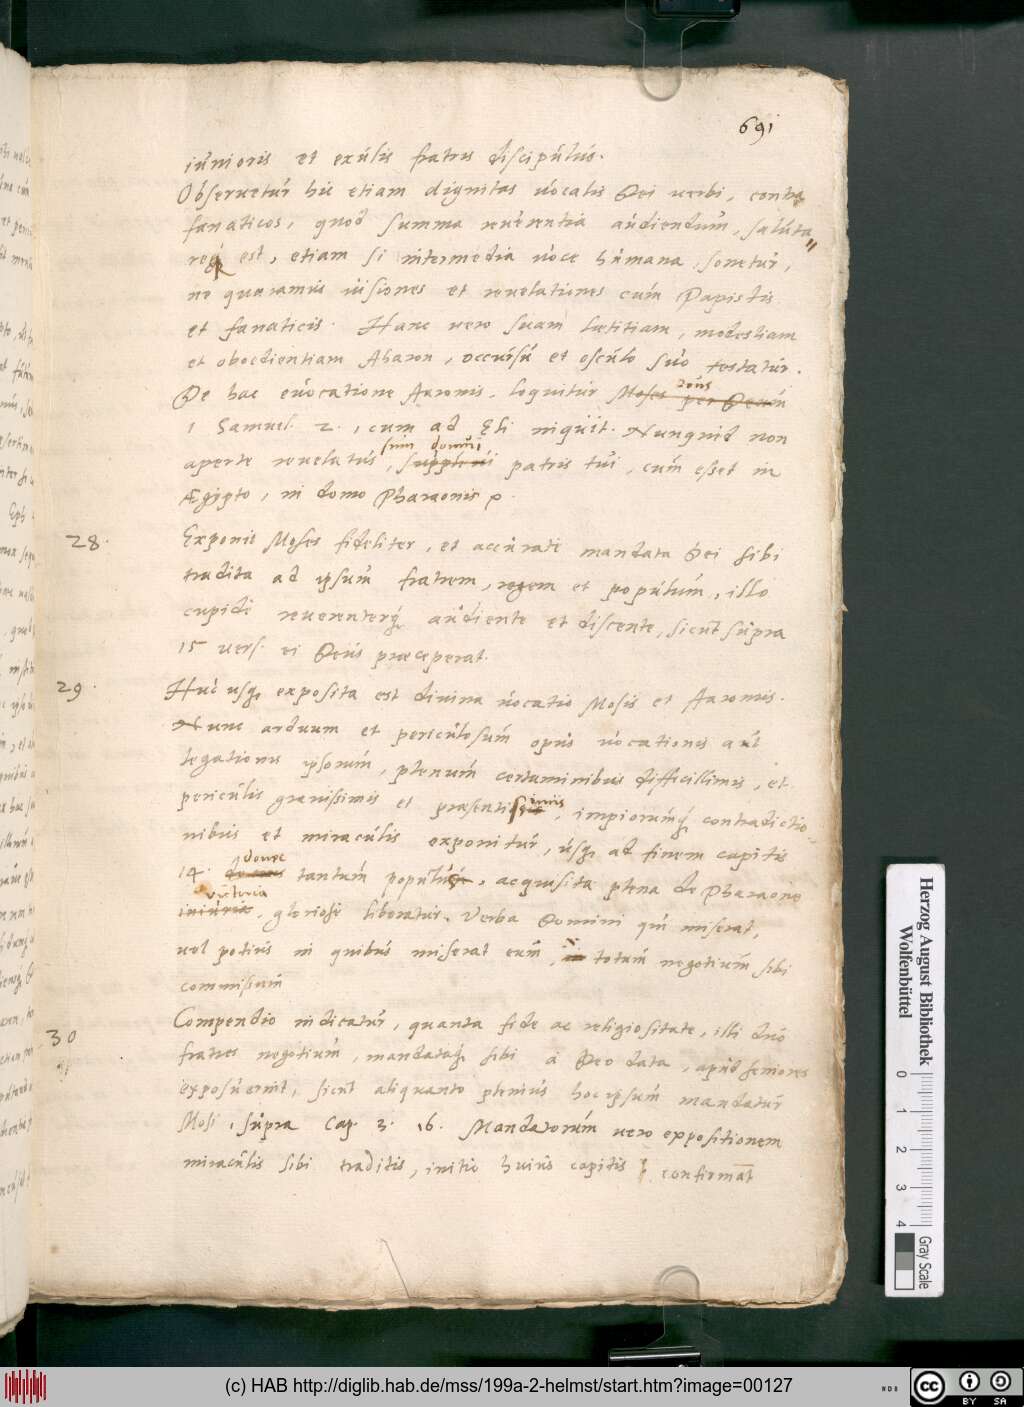 691
iunioris et exulis fratris discipulus.
Observetur hic etiam dignitas vocalis Dei verbi, contra
fanaticos, quod summa reverentia audiendum, saluta
re est, etiam si intermedia voce humana sonetur,
ne quaramus visiones et revelationes cum Papistis
et fanaticis. Hanc vero suam lætitiam, modestiam
et obœdientiam Aharon, occursu et osculo suo testatur.
De hac evocatione Aaronis, loquitur Moses per Deum
1 Samuel. 2., cum ad Eli inquit. Nunquid non
sum domui
aperte revelatus, patris tui, cum esset in
Ægypto, in domo Pharaonis
28. Exponit Moses fideliter, et accurate mandata Dei sibi
tradita ad ipsum fratrem, regem et populum, illo
cupide reverenterq; audiente et discente, sicut supra
15 vers. ei Deus præceperat.
29. Huc usq; exposita est divina vocatio Mosis et Aaronis.
Nunc arduum et periculosum opus vocationis aut
legationis ipsorum, plenum certaminibus difficillimis, et
imis
periculis gravissimis et præsentiss, impiorumq; contradictio
nibus et miraculis exponitur, usq; ad finem capitis
donec
14. tantum populus, acquisita plena de Pharaone
victoria
iniuria, gloriose liberatur. Verba Domini qui miserat,
vel potius in quibus miserat eum, totum negotium sibi
commissum
30 Compendio indicatur, quanta fide ac religiositate, illi duo
fratres negotium, mandataq; sibi a Deo data, apud seniores
exposuerint, sicut aliquanto plenius hoc ipsum mandatur
Mosi, supra Cap. 3. 16. Mandatorum vero expositionem
miraculis sibi traditis, initio huius capitis confirmāt
Herzog August Bibliothek
Wolfenbüttel
0 1 2 3 4
Gray Scale
(c) HAB http://diglib.hab.de/mss/199a-2-helmst/start.htm?image=00127
cc BY SA